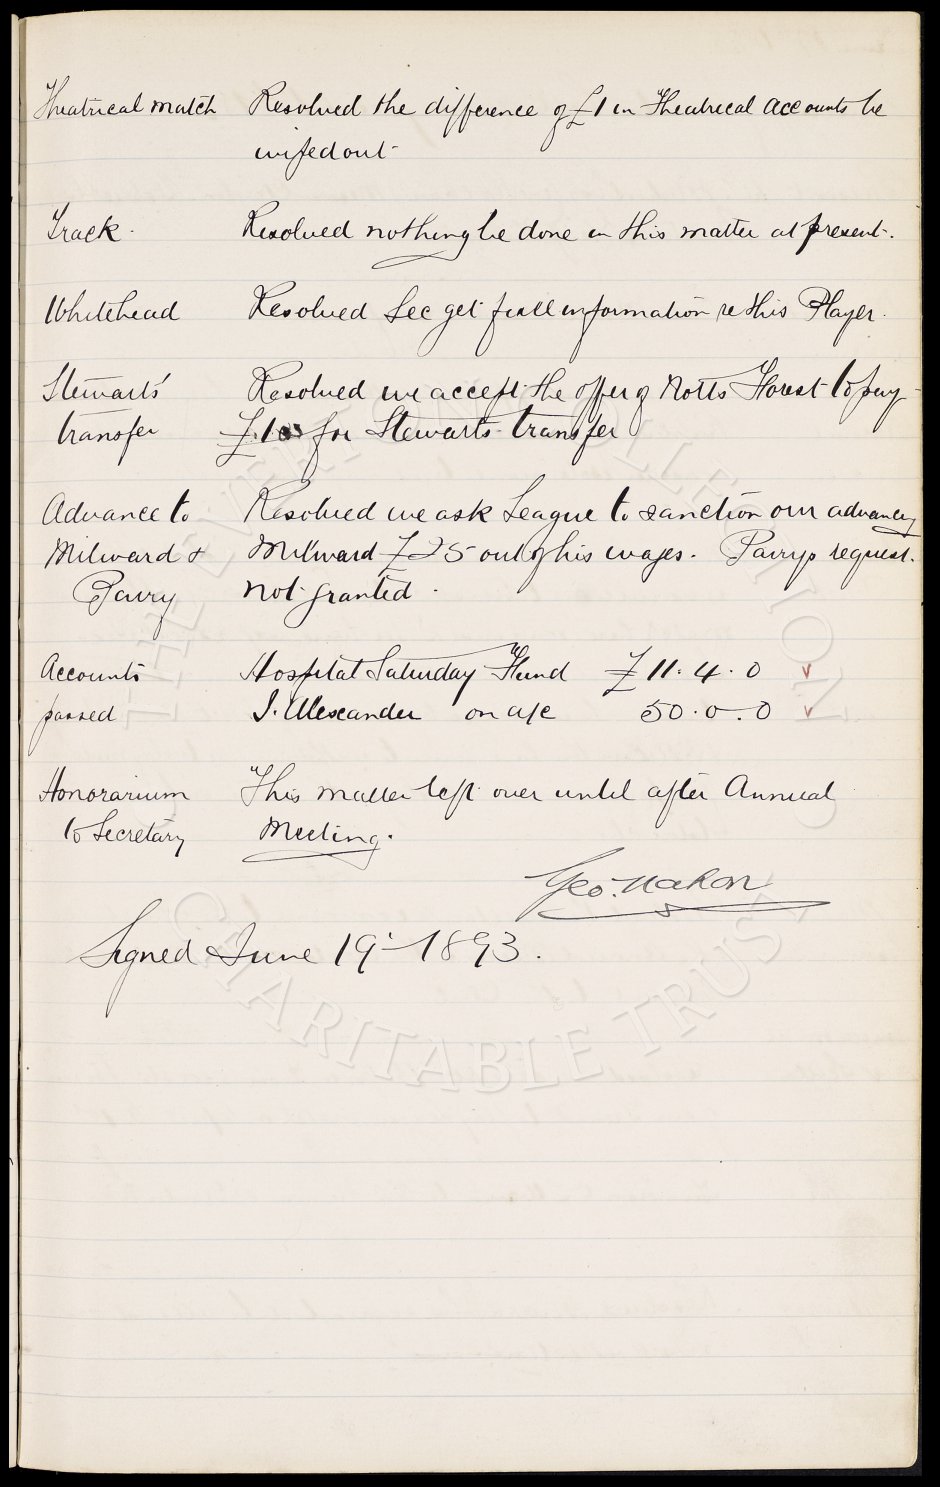 Theatrical match Resolved the difference of £1 in Theatrical Accounts be
wiped out
Track. Resolved nothing be done in this matter at present.
Whitehead Resolved Sec get full information re this Player.
Stewarts' Resolved we accept the offer of Notts Forest to pay
transfer for Stewarts transfer
Advance to Resolved we ask League to sanction our advancing
Milward & Milward £25 out of his wages. Parrys request
Parry not granted.
Accounts Hospital Saturday Fund £11.4.0
passed J. Alexander on a/c 50.0.0
Honorarium This matter left over until after Annual
to Secretary Meeting.
Geo. Mahon
Signed June 19th 1893.
THE EVERTON COLLECTION
CHARITABLE TRUST